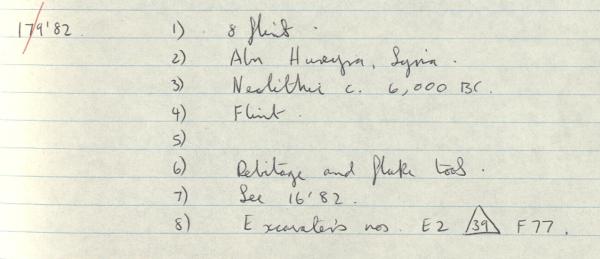 179'82 1) 8 flint.
2) Abu Hureyra, Syria.
3) Neolithic c. 6,000 BC.
4) Flint.
5)
6) Debitage and flake tools.
7) See 16'82.
8) Excavator's nos. E2 39 F77.